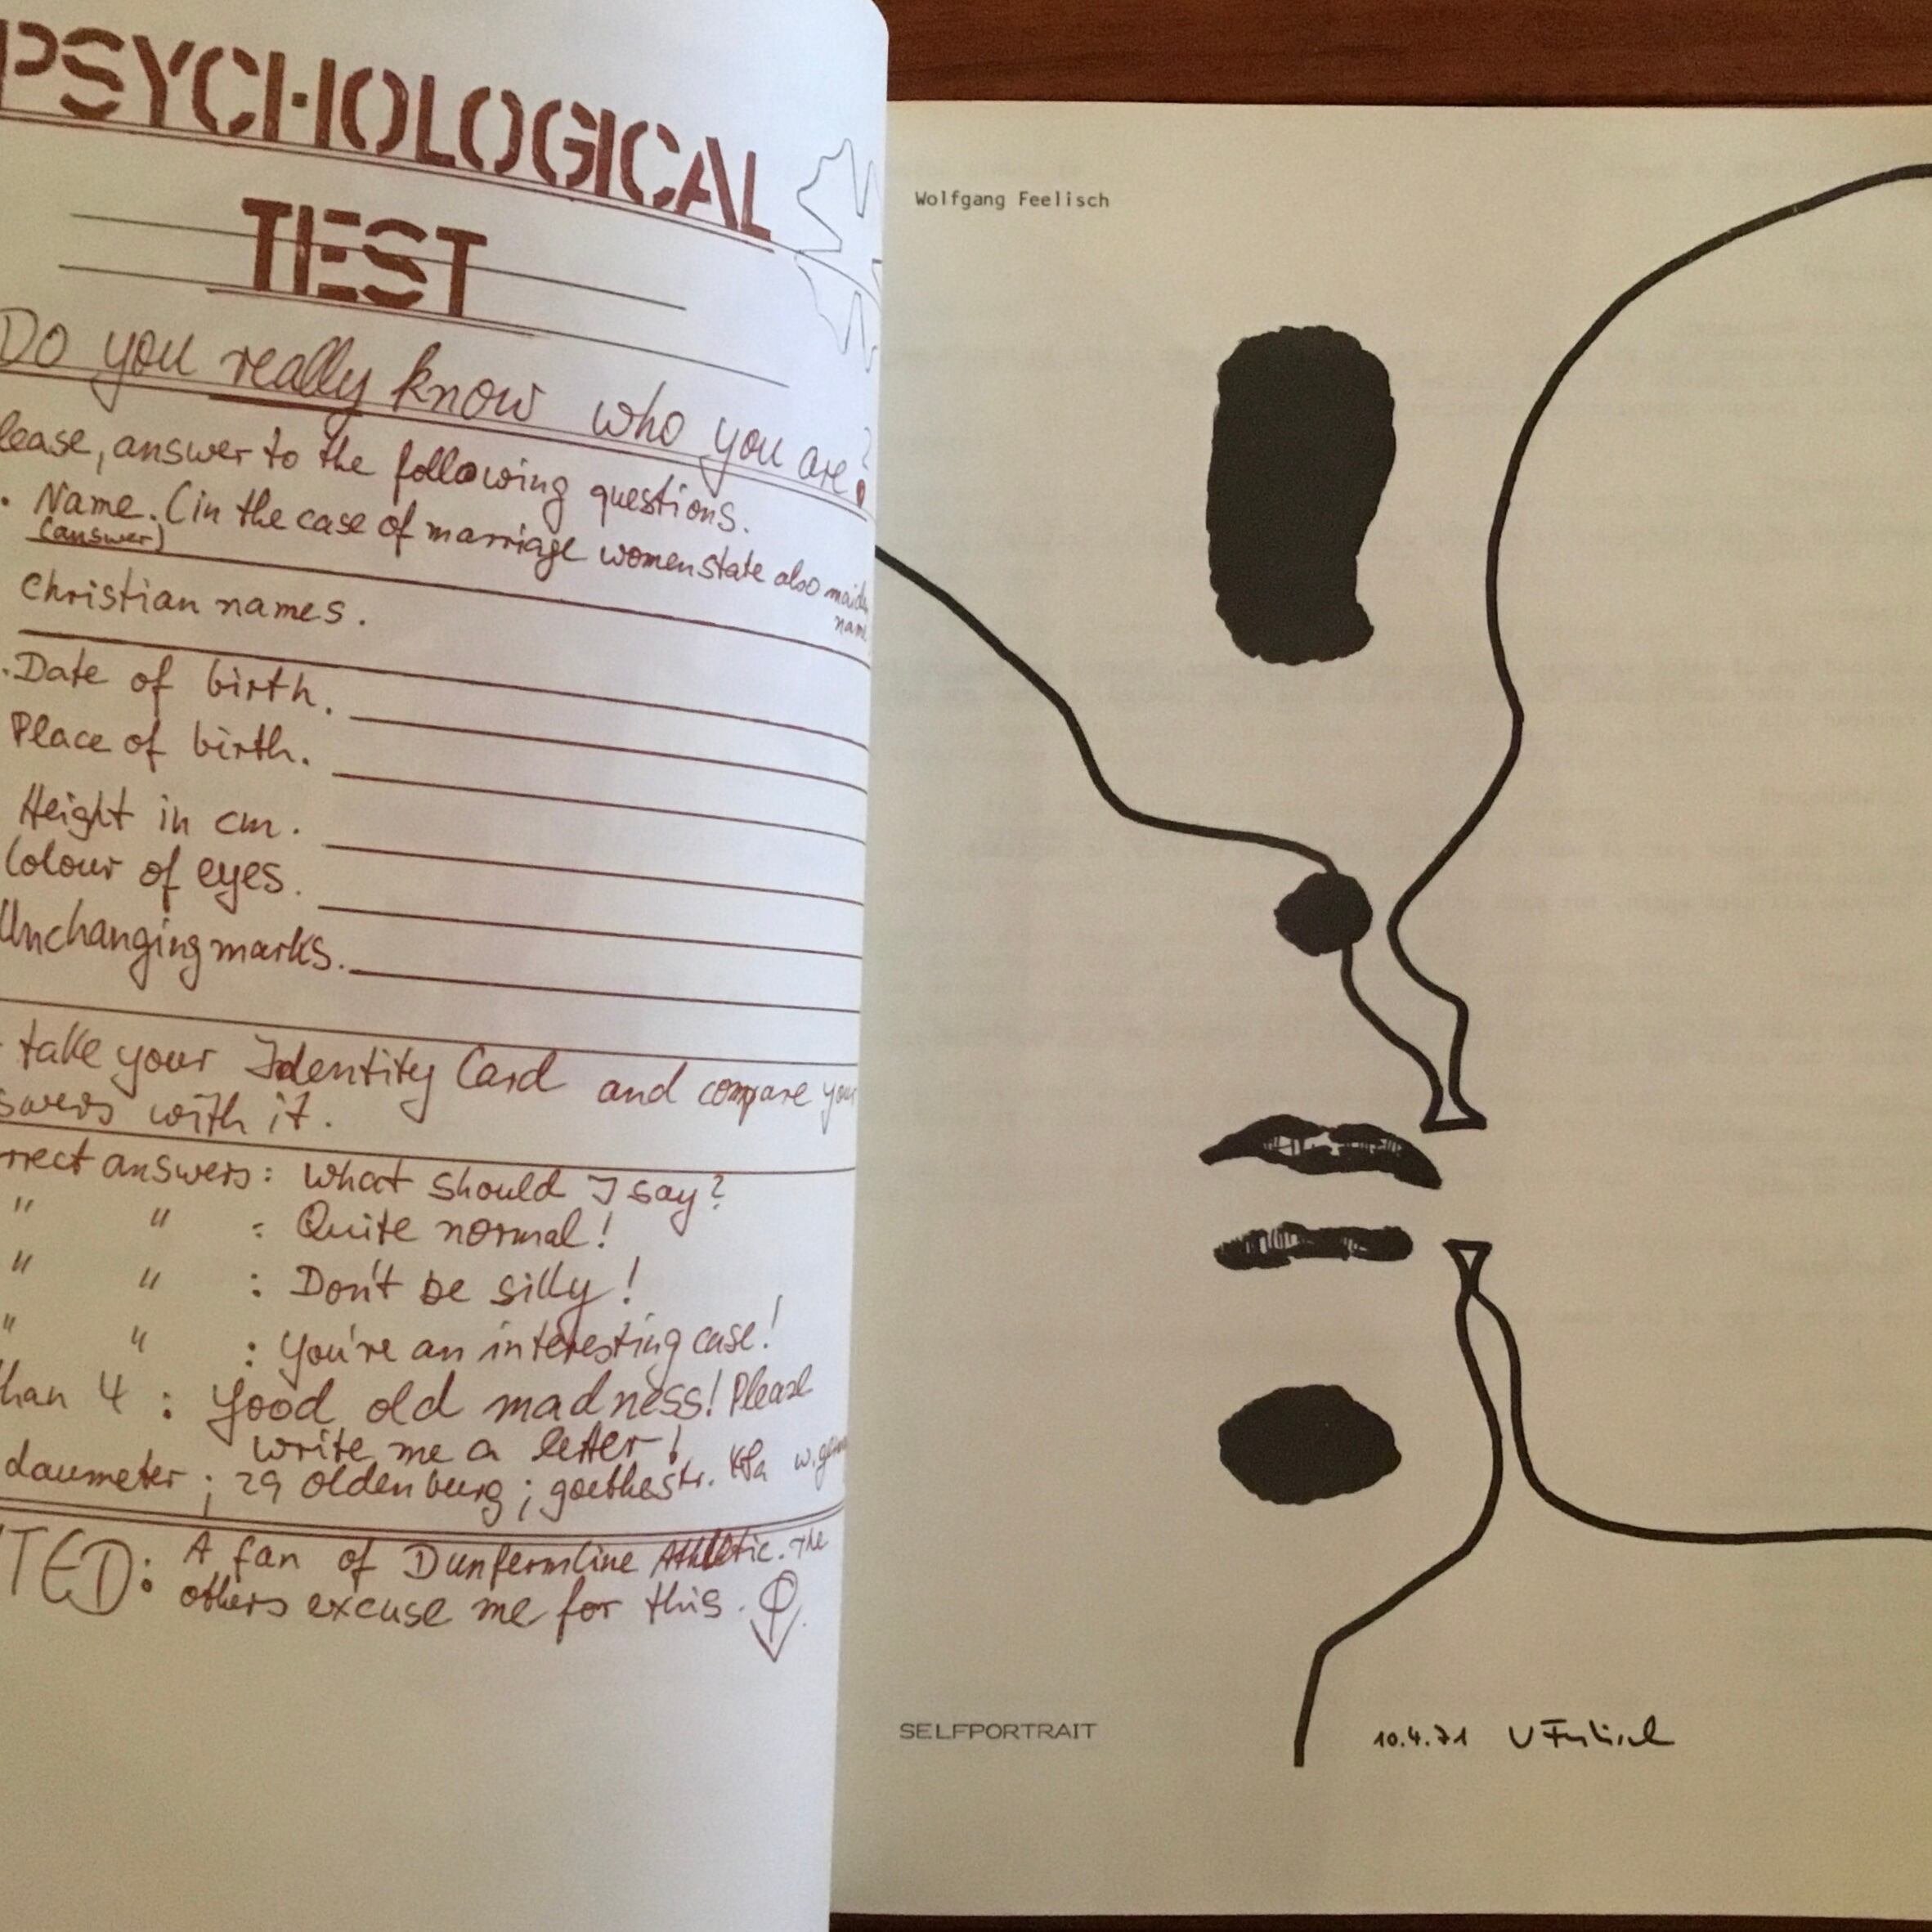 PSYCHOLOGICAL
TEST
Do you really know who you are?
lease, answer to the following questions.
. Name. (in the case of marriage women state also maiden
name
(answer)
Christian names.
. Date of birth.
Place of birth.
Height in cm.
Colour of eyes.
Unchanging marks.
take your Identity Card and compare your
swers with it.
rrect answers: What should I say?
" " : Quite normal!
" " : Don't be silly!
" " : You're an interesting case!
han 4 : Good old madness! Please
write me a letter!
daumeter; 29 oldenburg; goethestr.
TED: A fan of Dunfermline Athletic. The
others excuse me for this.
Wolfgang Feelisch
SELFPORTRAIT
10.4.71 W Feelisch